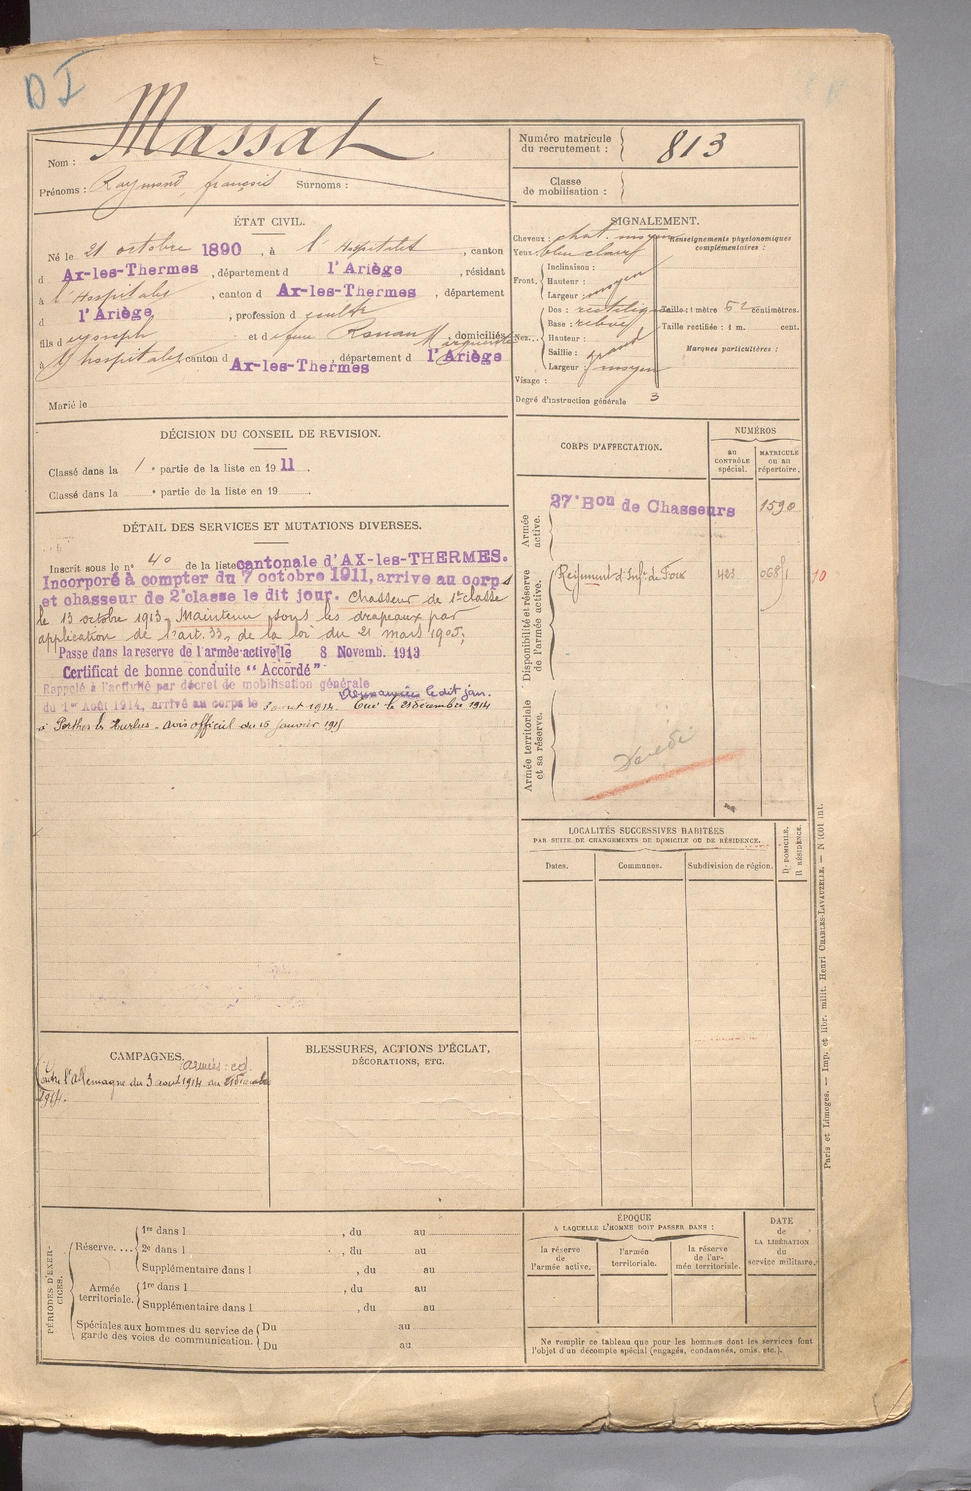 D I
Massat
Nom :
Prénoms : Raymond, françois Surnoms :
Numéro matricule
du recrutement : 813
Classe
de mobilisation :
ÉTAT CIVIL.
Né le 21 octobre 1890, à l'Hospitalet, canton
d Ax-les-Thermes, département d l'Ariège, résidant
à l'Hospitalet, canton d Ax-les-Thermes, département
d l'Ariège, profession d
fils d Joseph et d , domiciliés
à l'hospitalet canton d Ax-les-Thermes, département d l'Ariège
Marié le
SIGNALEMENT.
Cheveux : chat. moyen
Yeux : bleu clair
Front. Inclinaison :
Hauteur : moyen
Largeur : moyen
Nez. Dos : rectiligne
Base : relevé
Hauteur :
Saillie : grand
Largeur : moyen
Visage :
Degré d'instruction générale 3
Renseignements physionomiques
complémentaires :
Taille : 1 mètre 62 centimètres.
Taille rectifiée : 1 m. cent.
Marques particulières :
DÉCISION DU CONSEIL DE REVISION.
Classé dans la 1e partie de la liste en 1911.
Classé dans la e partie de la liste en 19 .
CORPS D'AFFECTATION.
NUMÉROS
au
CONTRÔLE
spécial.
MATRICULE
ou au
répertoire.
Armée
active.
27e Bon de Chasseurs 1590
Disponibilité et réserve
de l'armée active.
Régiment d'Infie de Foix 423 068
10
Armée territoriale
et sa réserve.
Décédé
DÉTAIL DES SERVICES ET MUTATIONS DIVERSES.
Inscrit sous le n° 40 de la liste cantonale d'AX-les-THERMES.
Incorporé à compter du 7 octobre 1911, arrive au corps
et chasseur de 2e classe le dit jour. Chasseur de 1re classe
le 13 octobre 1913. Maintenu sous les drapeaux par
application de l'art. 33, de la loi du 21 mars 1905,
Passe dans la réserve de l'armée active le 8 Novemb. 1913
Certificat de bonne conduite "Accordé"
Rappelé à l'activité par décret de mobilisation générale
du 1er Août 1914, arrivé au corps le 3 aout 1914. le dit jour. Tué le 21 décembre 1914
à Perthes les Hurlus - avis officiel du 15 janvier 1915
LOCALITÉS SUCCESSIVES HABITÉES
PAR SUITE DE CHANGEMENTS DE DOMICILE OU DE RÉSIDENCE.
Dates.
Communes.
Subdivision de région.
D. DOMICILE.
R. RÉSIDENCE.
CAMPAGNES.
Contre l'Allemagne du 3 aout 1914 au 21 décembre
1914.
BLESSURES, ACTIONS D'ÉCLAT,
DÉCORATIONS, ETC.
PÉRIODES D'EXER-
CICES.
Réserve.... 1re dans l , du au
2e dans l , du au
Supplémentaire dans l , du au
Armée
territoriale. 1re dans l , du au
Supplémentaire dans l , du au
Spéciales aux hommes du service de
garde des voies de communication. Du au
Du au
ÉPOQUE
A LAQUELLE L'HOMME DOIT PASSER DANS :
la réserve
de
l'armée active.
l'armée
territoriale.
la réserve
de l'ar-
mée territoriale.
DATE
de
LA LIBÉRATION
du
service militaire.
Ne remplir ce tableau que pour les hommes dont les services font
l'objet d'un décompte spécial (engagés, condamnés, omis, etc.).
Paris et Limoges. — Imp. et libr. milit. Henri CHARLES-LAVAUZELLE. — N 1001 int.